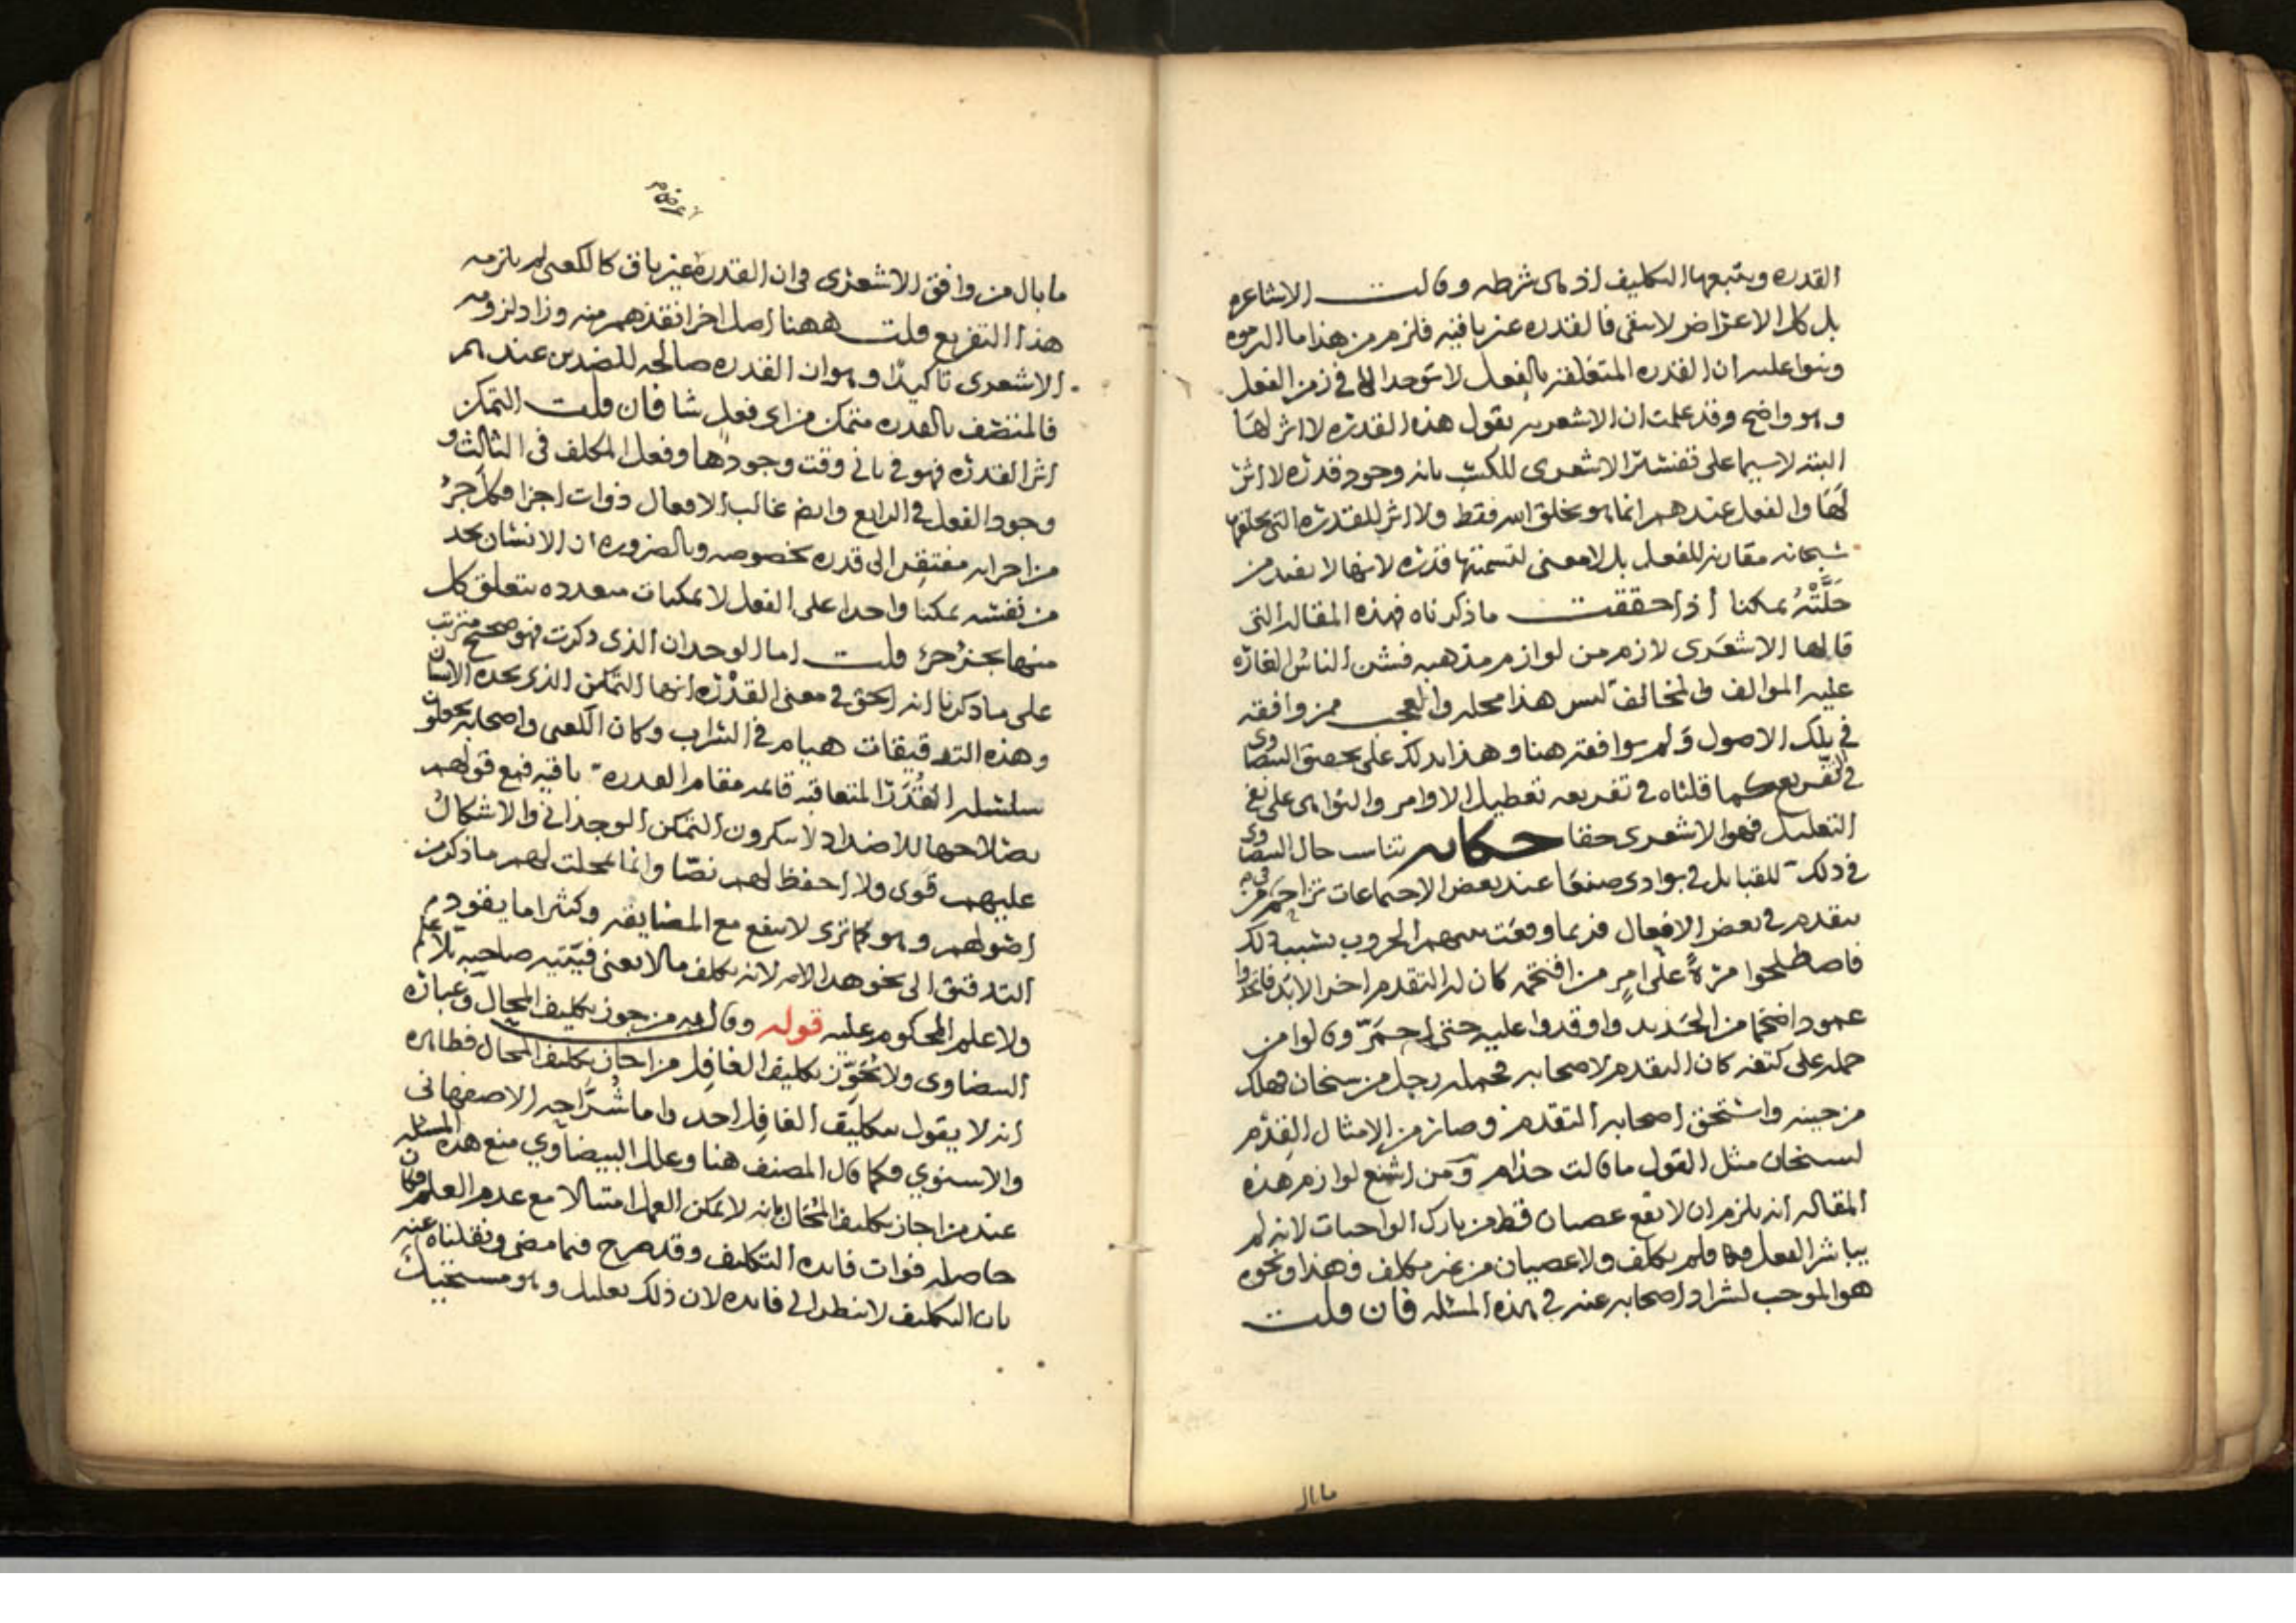 القدره ويتبعها التكليف اذ هى شرطه وقالت الاشاعره
بل كل الاعراض لا تبقى فالقدره غير باقيه فلزم من هذا ما الزموه
وبنوا عليه ان القدره المتعلقه بالفعل لا توجد الا فى زمن الفعل
وهو واضح وقد علمت ان الاشعريه يقول هذه القدره لا اثر لها
البته لا سيما على تفسير الاشعرى للكسب بانه وجود قدره لا اثر
لها والفعل عندهم انما هو بخلق الله فقط ولا اثر للقدره التى يخلقها
سبحانه مقارنه للفعل بل لا معنى لتسميتها قدره لانها لا تفيد من
حلته تمكنا اذا حققت ما ذكرناه فهذه المقاله التى
قالها الاشعرى لازم من لوازم مذهبه فشن الناس الغاره
عليه الموالف والمخالف ليس هذا محله وانما العجب ممن وافقه
فى تلك الاصول ولم يوافقه هنا وهذا يدلك على تحقيق البيضاوى
فى التفريع كما قلناه فى تفريعه تعطيل الاوامر والنواهى على نفى
التعليل فهو الاشعرى حقا حكايه تناسب حال البيضاوى
فى ذلك للقبايل فى بوادى صنعا عند بعض الاجتماعات تزاحم فى من
يتقدم فى بعض الافعال فربما وقعت بينهم الحروب بسبب ذلك
فاصطلحوا مرة على امر من اقتحمه كان له التقدم اخر الابد فاتخذوا
عمودا ضخما من الحديد واوقدوا عليه حتى احمر وقالوا من
حمله على كتفه كان التقدم لاصحابه فحمله رجل من سنحان فهلك
من حينه واستحق اصحابه التقدم وصار من الامثال القدم
لسنحان مثل القول ما قالت حذام ومن اشنع لوازم هذه
المقاله انه يلزم ان لا يقع عصيان قط من تارك الواجبات لانه لم
يباشر الفعل فلم يكلف ولا عصيان من غير مكلف فهذا ونحوه
هو الموجب لشراد اصحابه عنه فى هذه المسئله فان قلت
ما بال
ما بال من وافق الاشعرى فى ان القدرة غير باق كالكعبى لم يلزمه
هذا التفريع قلت ههنا اصل اخر انقذهم منه وزاد لزومه
الاشعرى تاكيدا وهو ان القدره صالحه للضدين عندهم
فالمتصف بالقدره متمكن من اى فعل شا فان قلت التمكن
اثر القدره فهو فى ثانى وقت وجودها وفعل المكلف فى الثالث و
وجود الفعل فى الرابع وايضا غالب الافعال ذوات اجزا فكل جزء
من اجزايه مفتقر الى قدره مخصوصه وبالضروره ان الانسان يجد
من نفسه تمكنا واحدا على الفعل لا تمكنات متعدده يتعلق كل
منها بجزء جزء قلت اما الوجدان الذى ذكرت فهو صحيح مترتب
على ما ذكرنا انه الحق فى معنى القدره انها التمكن الذى يجده الانسان
وهذه التدقيقات هيام فى السراب وكان الكعبى واصحابه يجعلون
سلسلة القدر المتعاقبه قائمه مقام القدره باقيه فمع قولهم
بصلاحها للاضداد لا ينكرون التمكن الوجدانى والاشكال
عليهم قوى ولا احفظ لهم نصا وانما تمحلت لهم ما ذكر من
اصولهم وهو كما ترى لا ينفع مع المضايقه وكثيرا ما يقود
التدقيق الى نحو هذا الامر لانه تكلف ما لا يعنى صاحبه بلا علم
ولا علم المحكوم عليه قوله وقال به من جوز تكليف المحال وعبارة
البيضاوى ولا يجوز تكليف الغافل من احال تكليف المحال فظاهره
انه لا يقول بتكليف الغافل احد واما شراحه الاصفهانى
والاسنوي فكما قال المصنف هنا وعلل البيضاوي منع هذه المسئله
عند من اجاز تكليف المحال بانه لا يمكن العمل امتثالا مع عدم العلم فكان
حاصله فوات فايده التكليف وقد صرح فيما مضى ونقلناه عنه
بان التكليف لا ينظر الى فايده لان ذلك تعليل وهو مستحيل